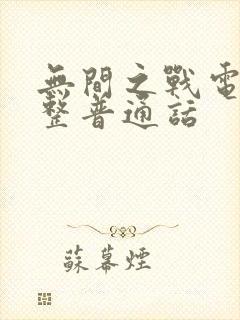 無間之戰電
整普通話
蘇幕煙